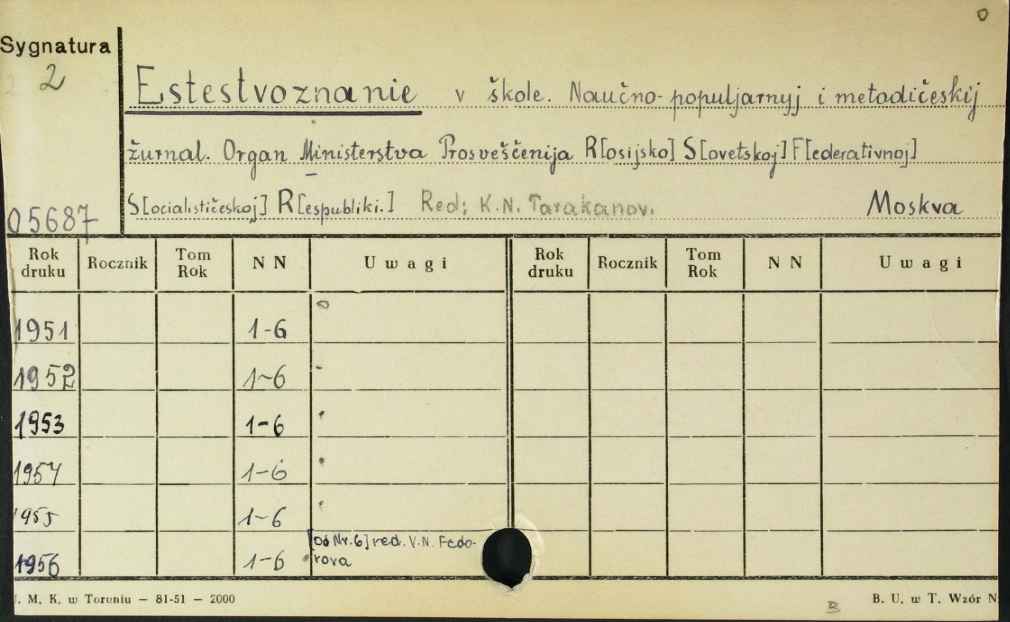 Sygnatura
2
05687
Estestvoznanie v škole. Naučno-populjarnyj i metodičeskij
žurnal. Organ Ministerstva Prosveščenija R[osijsko] S[ovetskoj] F[ederativnoj]
S[ocialističeskoj] R[espubliki.] Red; K.N. Tarakanov. Moskva
Rok druku Rocznik Tom Rok N N Uwagi Rok druku Rocznik Tom Rok N N Uwagi
1951 1-6
1952 1-6
1953 1-6
1954 1-6
1955 1-6
1956 1-6 [od Nr. 6] red. V.N. Fedo-
rova
M. K. w Toruniu — 81-51 — 2000
B
B. U. w T. Wzór N